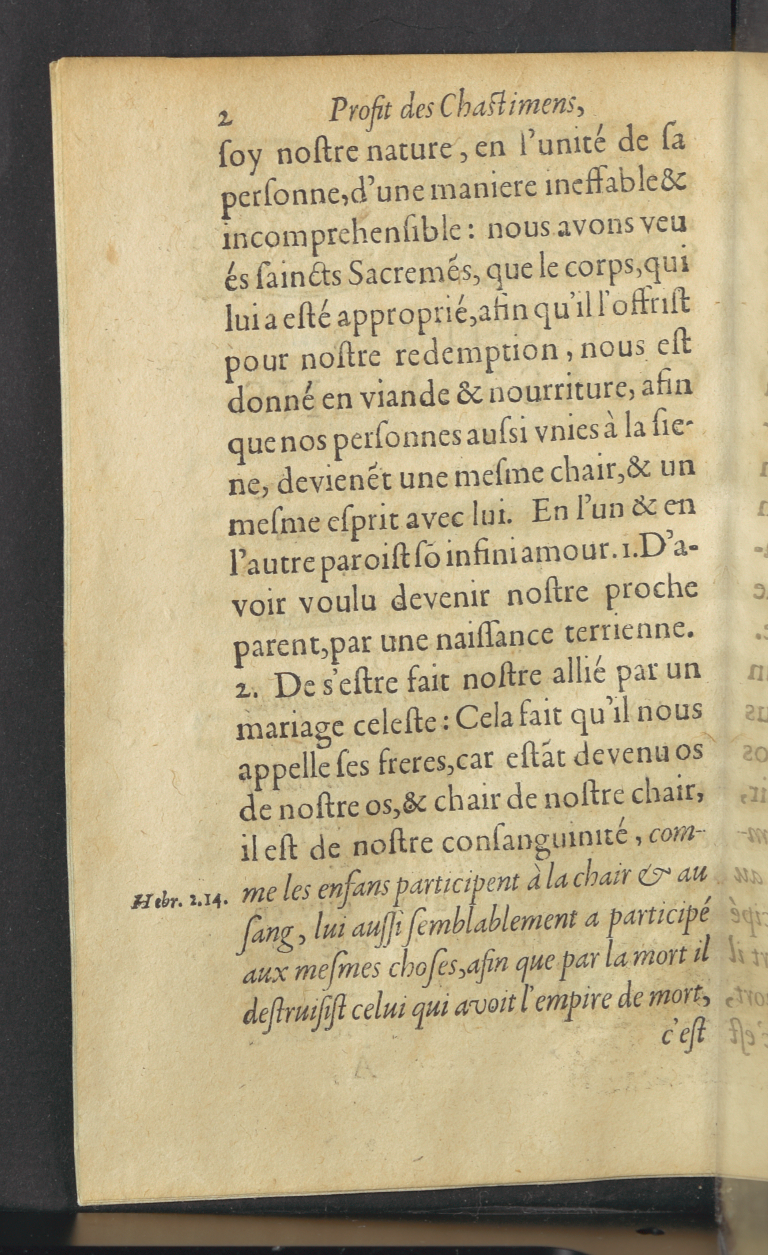 2 Profit des Chaſtimens,
ſoy noſtre nature, en l'unité de ſa
perſonne, d'une maniere ineffable &
incomprehenſible : nous avons veu
és ſaincts Sacremẽs, que le corps, qui
lui a eſté approprié, afin qu'il l'offriſt
pour noſtre redemption, nous eſt
donné en viande & nourriture, afin
que nos perſonnes auſsi vnies à la ſie-
ne, devienẽt une meſme chair, & un
meſme eſprit avec lui. En l'un & en
l'autre paroiſt ſõ infini amour. 1. D'a-
voir voulu devenir noſtre proche
parent, par une naiſſance terrienne.
2. De s'eſtre fait noſtre allié par un
mariage celeſte : Cela fait qu'il nous
appelle ſes freres, car eſtãt devenu os
de noſtre os, & chair de noſtre chair,
il eſt de noſtre conſanguinité, com-
Hebr. 2.14. me les enfans participent à la chair & au
ſang, lui auſſi ſemblablement a participé
aux meſmes choſes, afin que par la mort il
deſtruiſiſt celui qui avoit l'empire de mort,
c'eſt